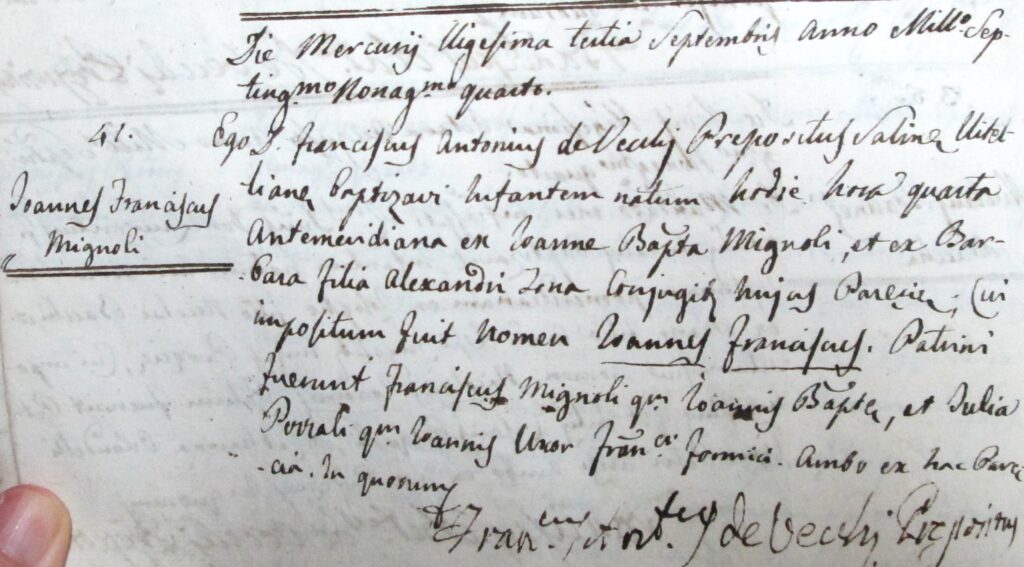 Die Mercurij Vigesima tertia Septembris Anno Mill.o Sep-
tingmo Nonagmo quarto.
41.
Joannes Franciscus
Mignoli
Ego D. Franciscus Antonius de Vecchj Prepositus Saline Vitel-
liane baptizavi Infantem natum hodie hora quarta
Antemeridiana ex Joanne Bapta Mignoli, et ex Bar-
bara filia Alexandri Zona Conjugibus hujus Pareciæ, Cui
impositum fuit nomen Joannes Franciscus. Patrini
fuerunt Franciscus Mignoli qm Joannis Baptæ, et Julia
qm Joannis Uxor Franci Formici. Ambo ex hac Pare-
cia. In quorum
Francus Antus de Vecchj Prepositus